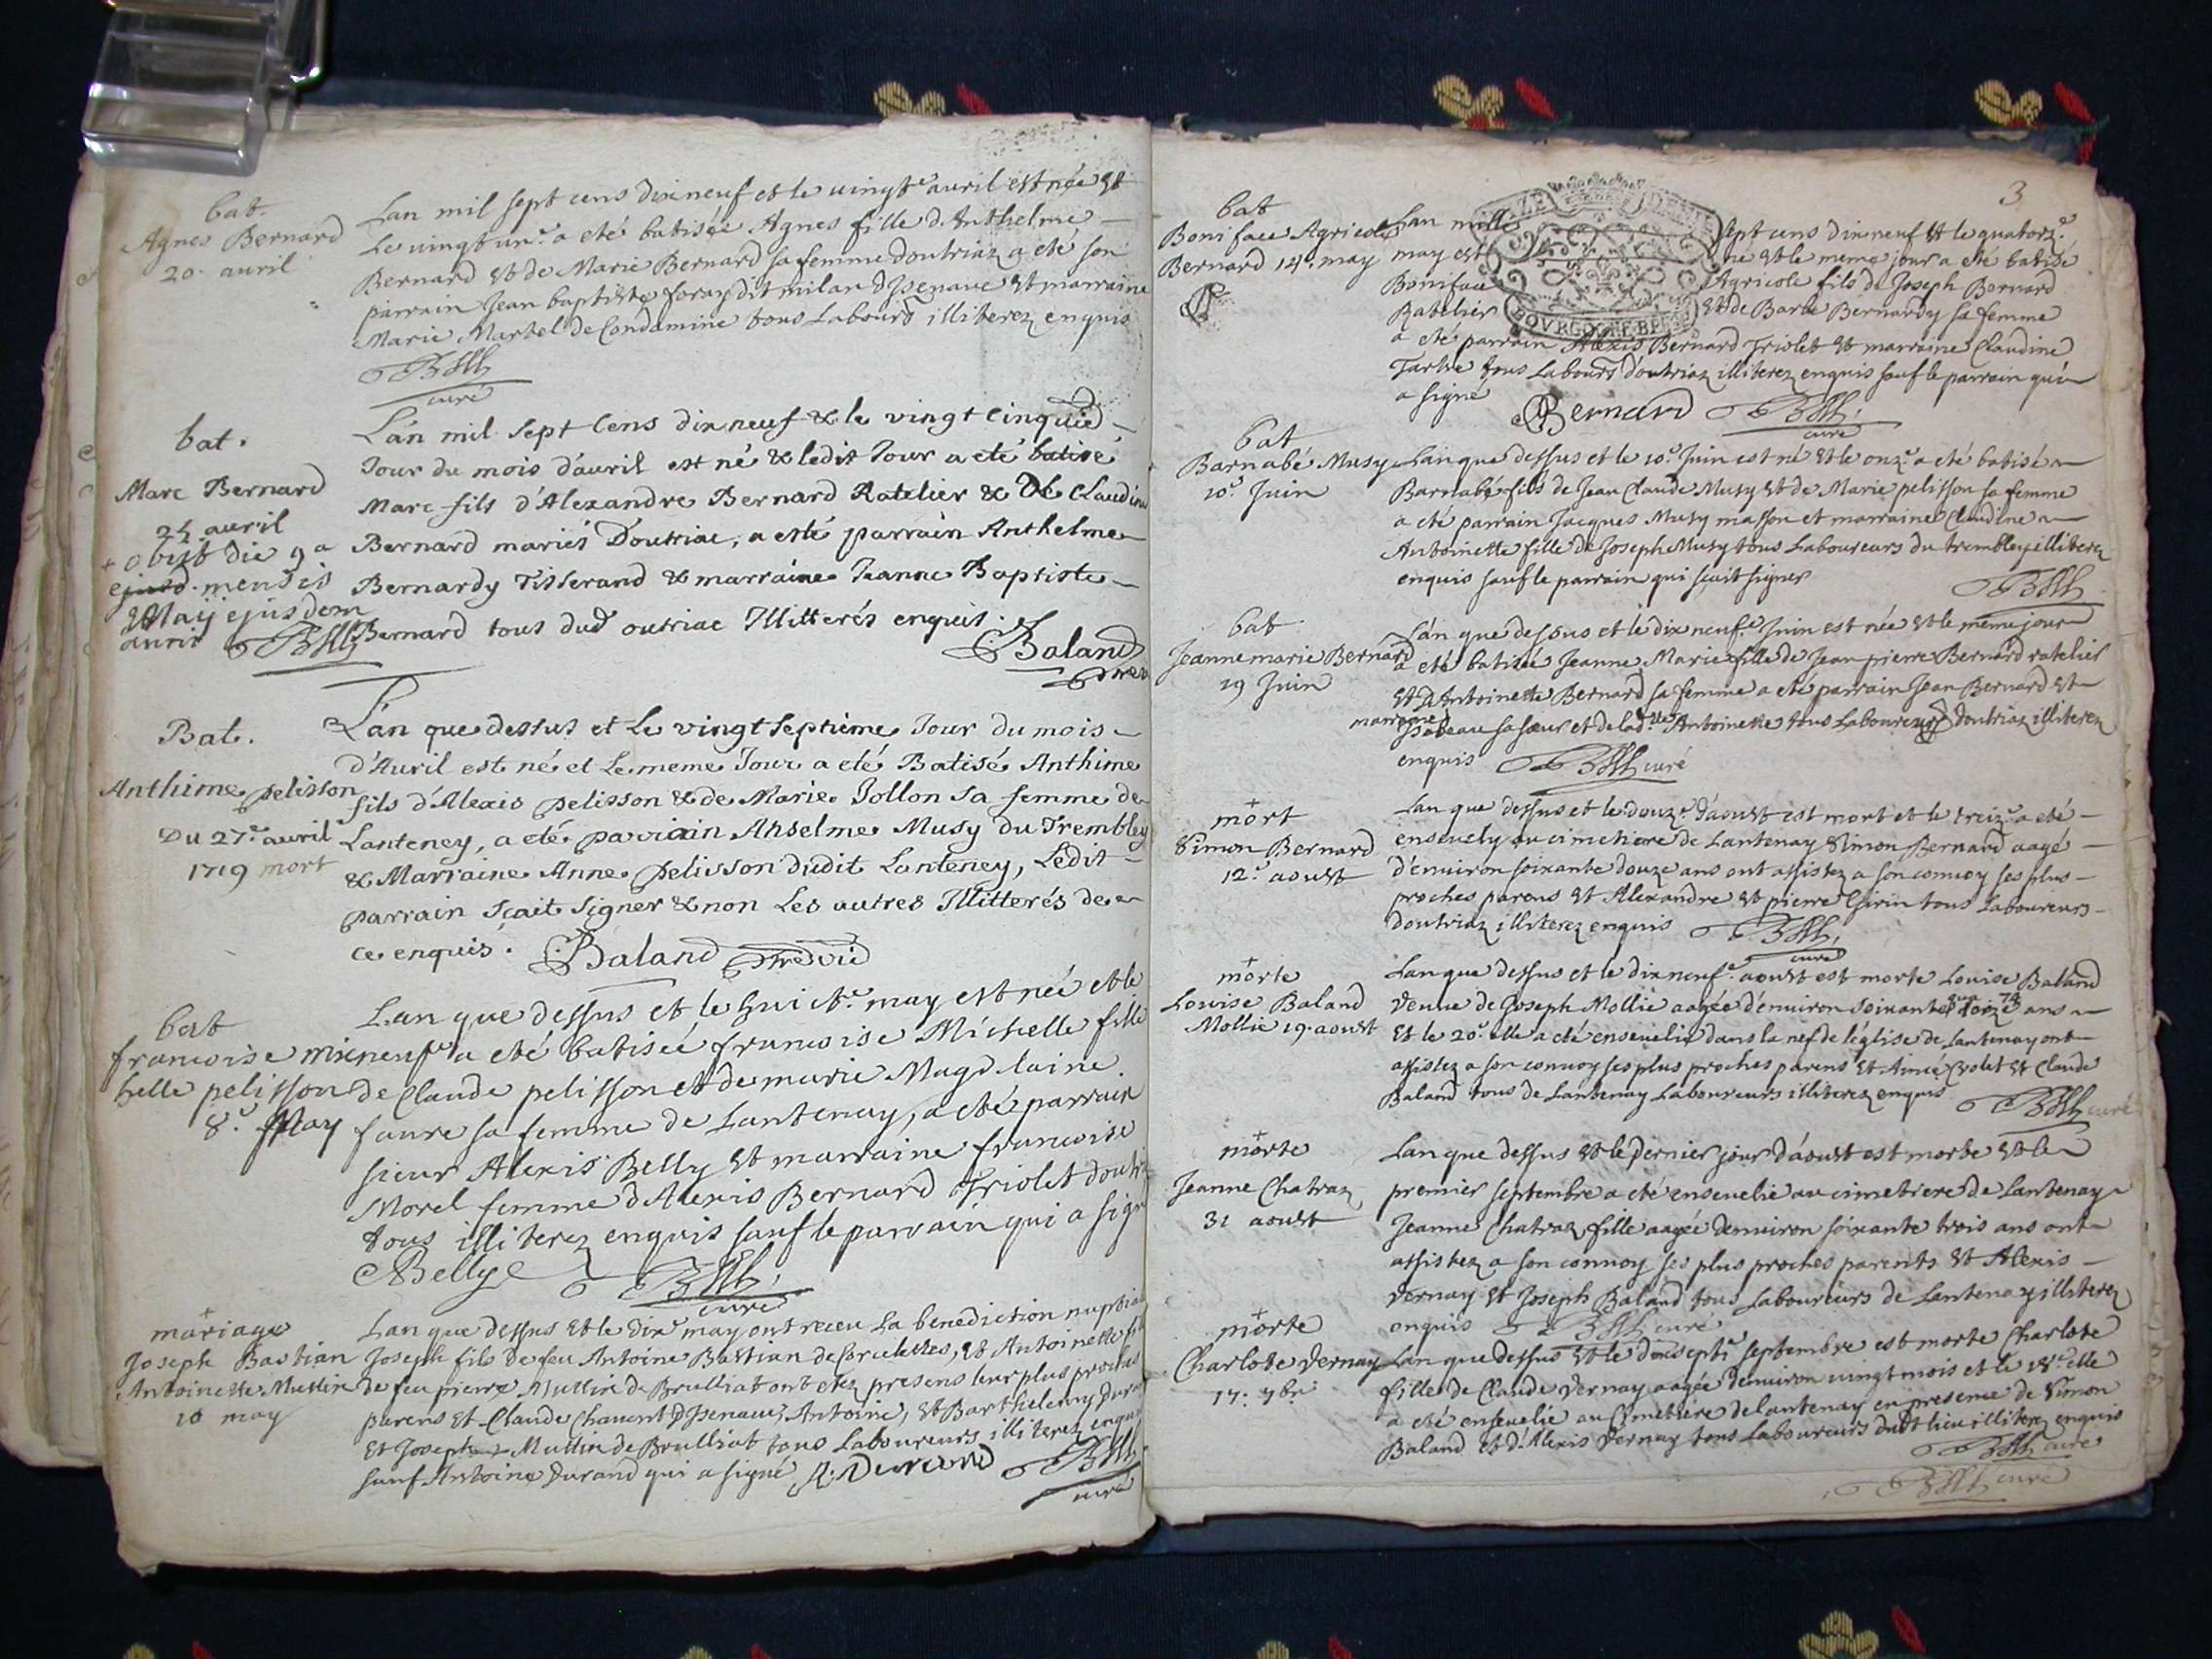 bat.
Agnes Bernard
20. auril
Lan mil sept cens dixneuf et le uingt.e auril est née et
Le uingt un.e a eté batisée Agnes fille d. Anthelme
Bernard et de Marie Bernard sa femme doutriaz a eté son
parrain Jean baptiste foray dit milan dJzenaue et marraine
Marie Martel de Condamine tous Labours illiterez enquis
curé
bat.
Marc Bernard
auril
+ obijt die 9a
mensis
Maij ejusdem
L'an mil sept Cens dixneuf & le vingt Cinquie
Jour du mois d'auril est né & ledit Jour a eté batisé
Marc fils d'Alexandre Bernard Ratelier & De Claudine
Bernard mariés D'outriac, a esté parrain Anthelme
Bernardy Tisserand & marraine Jeanne Baptiste
Bernard tous dud outriac Illitterés enquis.
Baland
Bat.
Anthime pelisson
Du 27.e auril
1719 mort
L'an que dessus et Le vingt septième Jour du mois
d'Auril est né et Le meme Jour a eté Batisé Anthime
fils d'Alexis pelisson & de Marie Jollon sa femme de
Lanteney, a eté parrain Anselme Musy du Trembley
& Marraine Anne pelisson dudit Lanteney, Ledit
parrain sçait signer & non Les autres Illitterés de
ce enquis. Baland
bat
francoise mi
helle pelisson
8.e May
Lan que dessus et le huict.e may est née et le
neuf.e a eté batiseé francoise Michelle fille
de Claude pelisson et de marie Magdelaine
faure sa femme de Lantenay, a eté parrain
sieur Alexis Belly et marraine francoise
Morel femme d'Alexis Bernard Triolet doutri
tous illiterez enquis sauf le parrain qui a sign
Belly
curé
+
mariage
Joseph Bastian
Antoinette Muttin
10 may
Lan que dessus et le dix.e may ont receu La benediction nuptia
Joseph fils de feu Antoine Bastian de et Antoinette fi
de feu pierre Muttin de Brulliat ont etez presens leur plus proches
parens et Claude Chauent dJzenaue, Antoine, et Barthelemy Duran
et Joseph Muttin de Brulliat tous Laboureurs illiterez enquis
sauf Antoine Durand qui a signé A. Durand
curé
3
bat
Boniface Agricole
Bernard 14.e may
Lan mille sept cens dixneuf et le quatorz.e
may est né et le meme jour a eté batisé
Boniface Agricole fils de Joseph Bernard
Ratelier et de Barbe Bernardy sa femme
a eté parrain Alexis Bernard Triolet et marraine Claudine
Tarbe tous Labours doutriaz illiterez enquis sauf le parrain qui
a signé Bernard
curé
bat
Barnabé Musy
10.e Juin
Lan que dessus et le 10.e Juin est né et le onz.e a eté batisé
Barnabé fils de Jean Claude Musy et de Marie pelisson sa femme
a eté parrain Jacques Musy masson et marraine Claudine
Antoinette fille de Joseph Musy tous Laboureurs du trembley illiterez
enquis sauf le parrain qui sçait signer
bat
Jeanne marie Bernard
19 Juin
L'an que dessus et le dixneuf.e Juin est née et le meme jour
a eté batiseé Jeanne Marie fille de Jean pierre Bernard ratelier
et d'Antoinette Bernard sa femme a eté parrain Jean Bernard et
marraine Isabeau sa sœur et de lad.tte Antoinette tous Laboureurs doutriaz illiterez
enquis curé
+
mort
Simon Bernard
12.e aoust
Lan que dessus et le douz.e d'aoust est mort et le treiz.e a eté
enseuely au cimetiere de Lantenay Simon Bernard aagé
d'enuiron soixante douze ans ont assistez a son conuoy ses plus
proches parens et Alexandre et pierre Girin tous Laboureurs
doutriaz illiterez enquis
curé
+
morte
Louise Baland
Mollie 19. aoust
Lan que dessus et le dixneuf.e aoust est morte Louise Baland
Veuue de Joseph Mollie aageé d'enuiron soixante ans
Et le 20.e elle a eté enseuelie dans la nef de l'église de Lantenay ont
assistez a son conuoy ses plus proches parens et Aimé et Claude
Baland tous de Lantenay Laboureurs illiterez enquis
curé
+
morte
Jeanne Chatraz
31 aoust
Lan que dessus et le Dernier jour d'aoust est morte et le
premier septembre a eté enseuelie au cimetiere de Lantenay
Jeanne Chatraz fille aageé denuiron soixante trois ans ont
assistez a son conuoy ses plus proches parents et Alexis
Vernay et Joseph Baland tous Laboureurs de Lantenay illiterez
enquis curé
+
morte
Charlote Vernay
17. 7bre
Lan que dessus et le dixsepti.e septembre est morte Charlote
fille de Claude Vernay aageé denuiron uingt mois et le 18.e elle
a eté enseuelie au Cimetiere de lantenay en presence de Simon
Baland et d. Alexis Vernay tous Laboureurs dudt lieu illiterez enquis
curé
curé